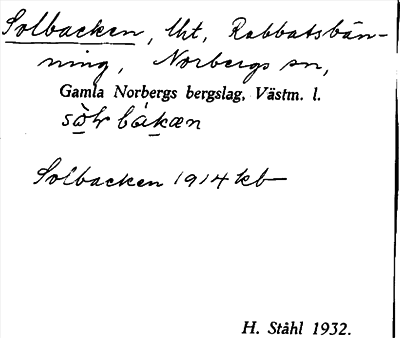 Solbacken, lht, Rabbatsbän-
ning, Norbergs sn,
Gamla Norbergs bergslag, Västm. l.
bákæn
Solbacken 1914 kb
H. Ståhl 1932.